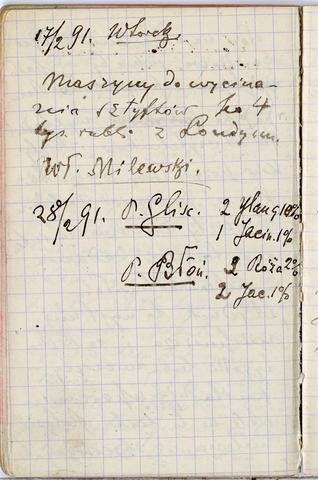 17/2 91. Wtorek.
Maszyny do wycina-
nia sztyftów po 4
tys. rubli z Londynu.
Wł. Milewski.
28/2 91. P. Glis. 2 Ylang 10%
1 Jacin. 1%
P. Błoń. 2 Róża 2%
2 Jac. 1%